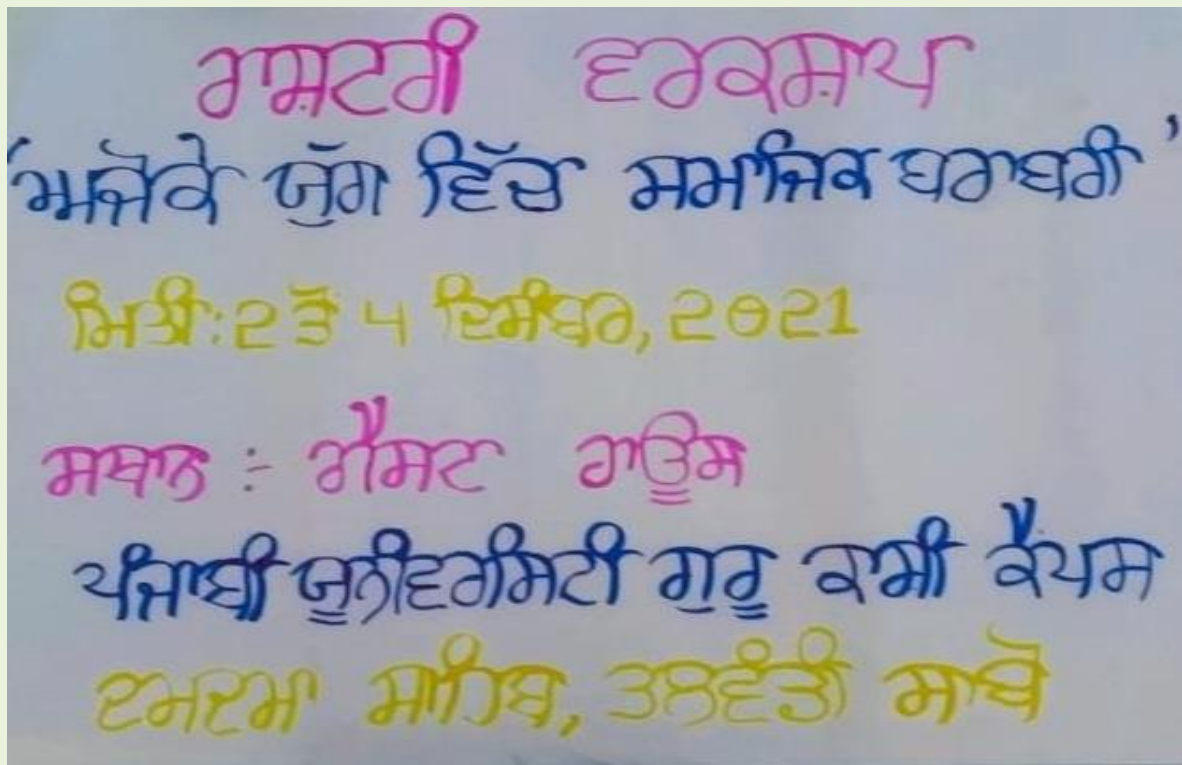 ਰਾਸ਼ਟਰੀ ਵਰਕਸ਼ਾਪ
'ਅਜੋਕੇ ਯੁੱਗ ਵਿੱਚ ਸਮਾਜਿਕ ਬਰਾਬਰੀ'
ਮਿਤੀ: 2 ਤੋਂ 4 ਦਿਸੰਬਰ, 2021
ਸਥਾਨ :- ਗੈਸਟ ਹਾਊਸ
ਪੰਜਾਬੀ ਯੂਨੀਵਰਸਿਟੀ ਗੁਰੂ ਕਾਸ਼ੀ ਕੈਂਪਸ
ਦਮਦਮਾ ਸਾਹਿਬ, ਤਲਵੰਡੀ ਸਾਬੋ